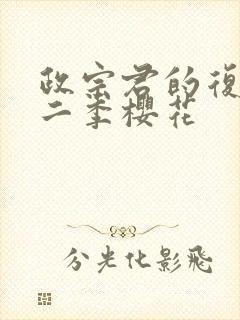 政宗君的復
二季櫻花
分光化影飛